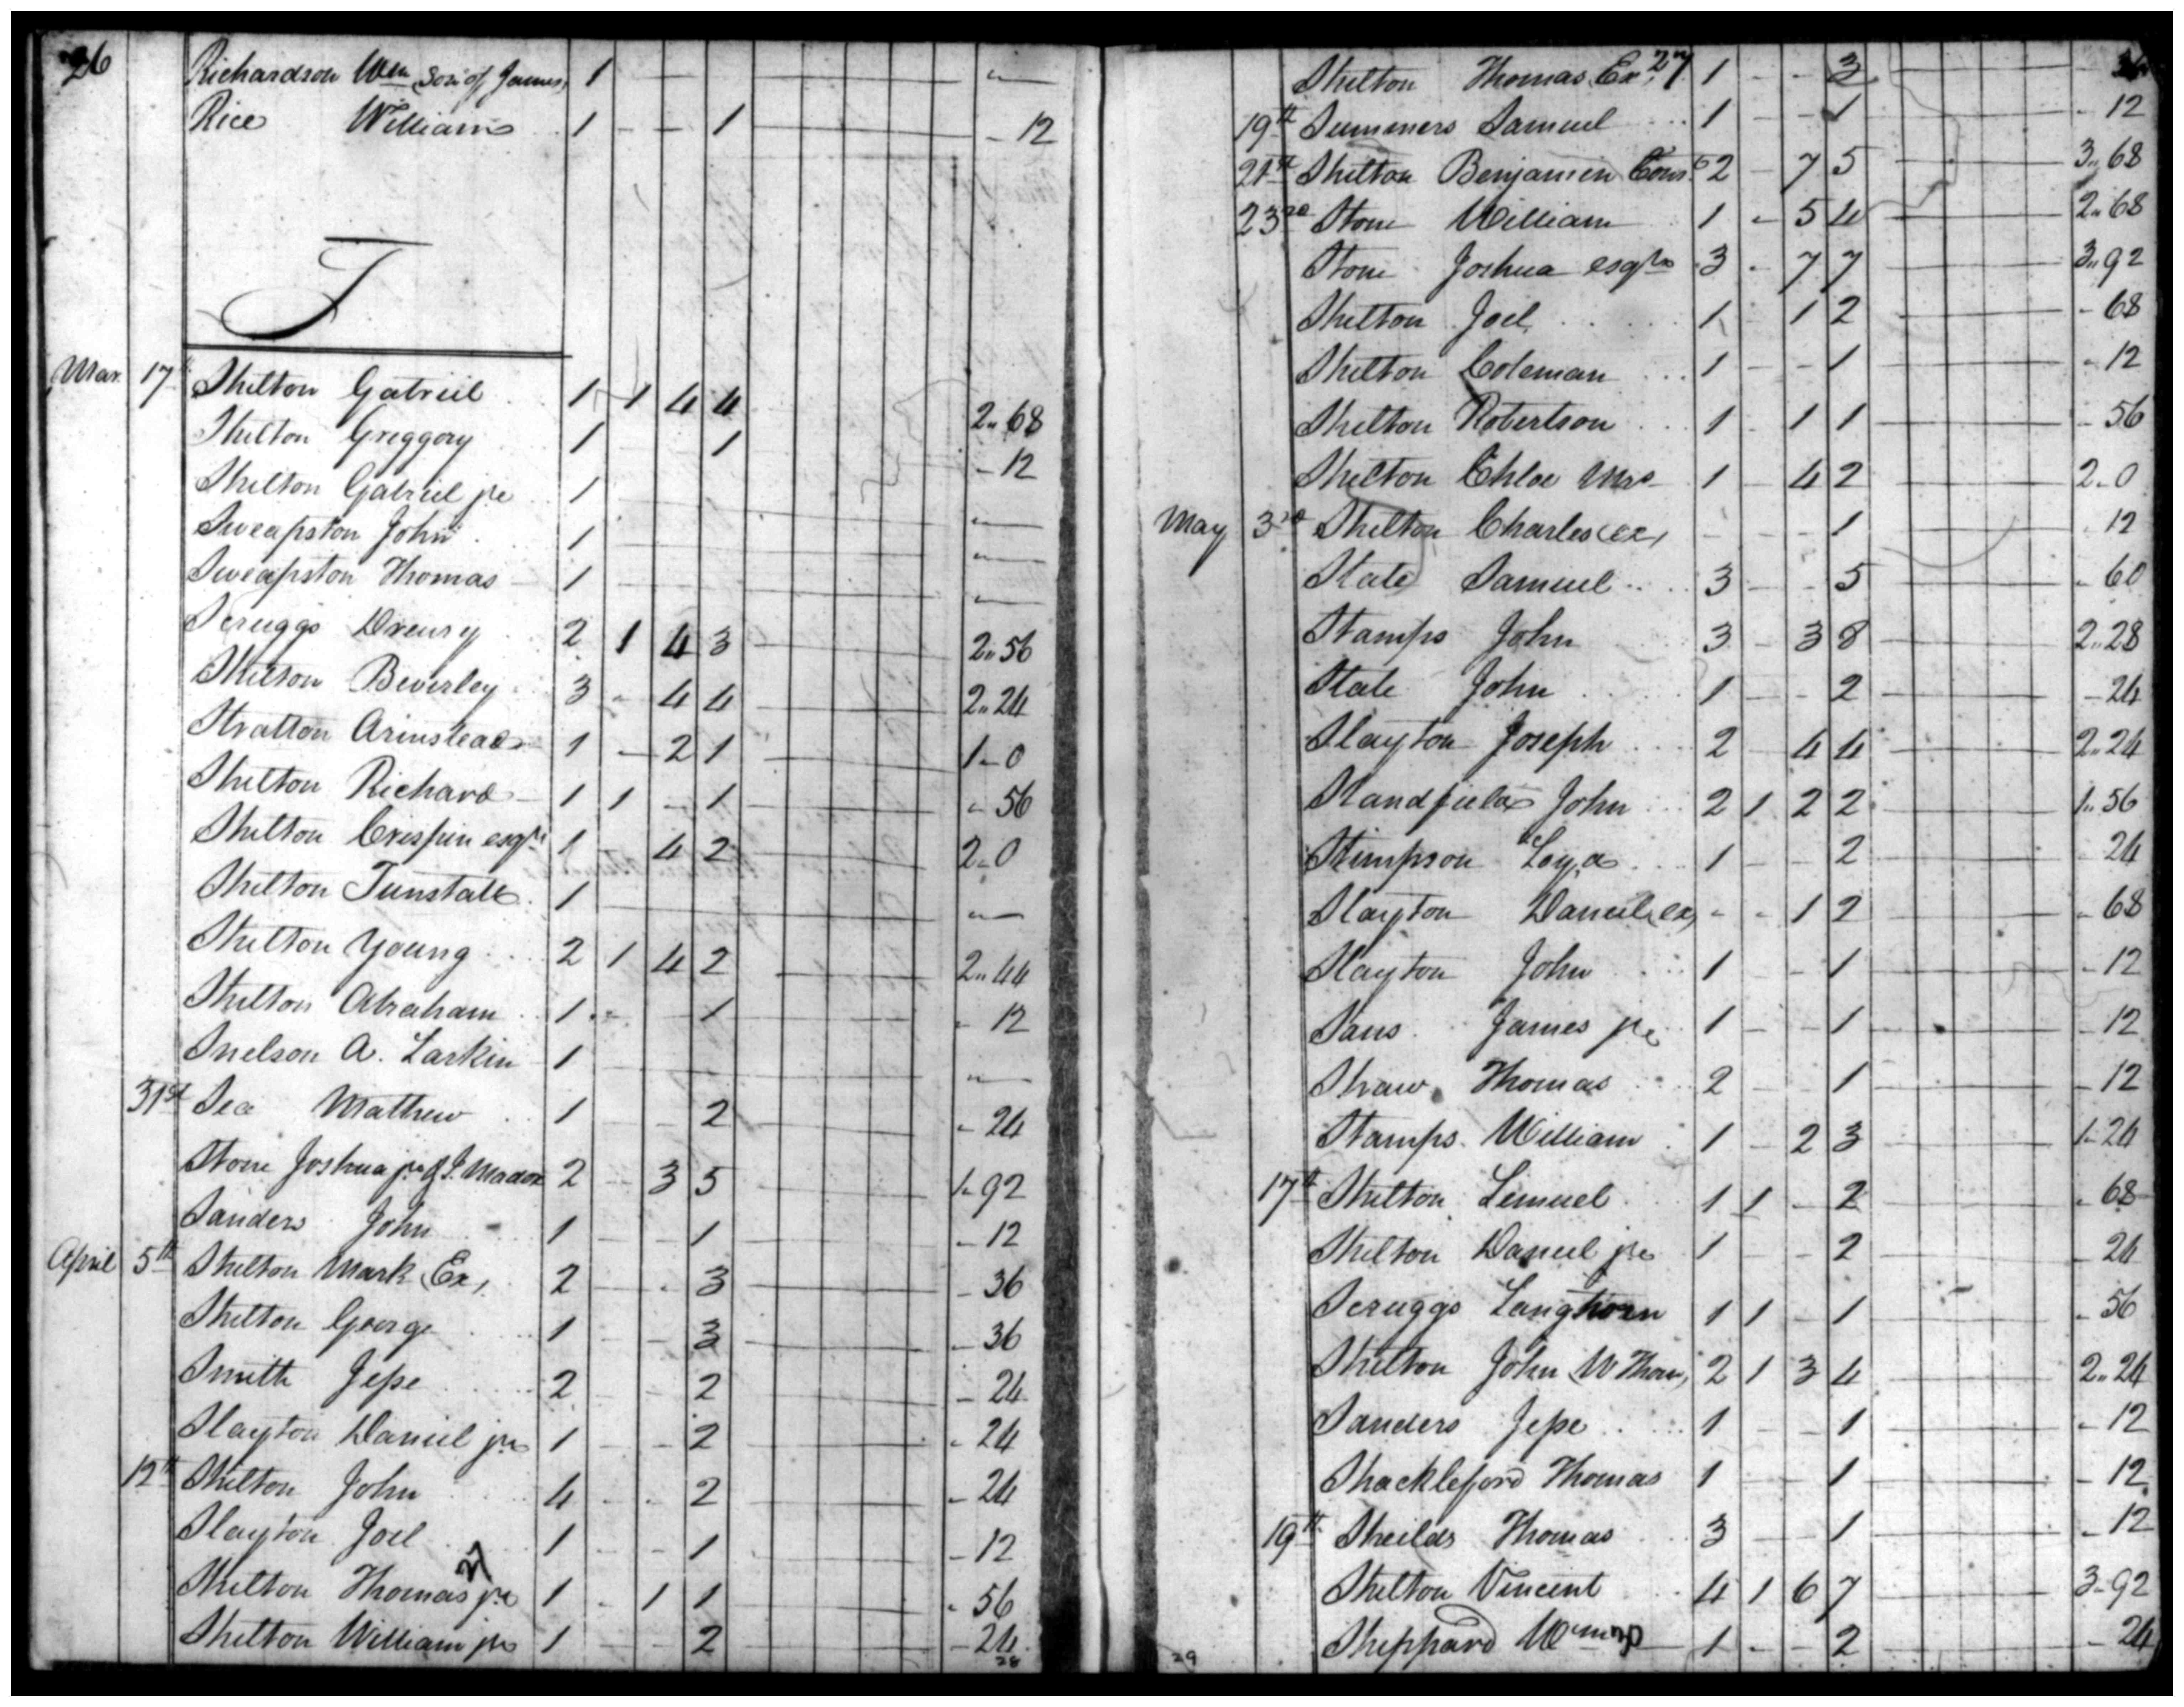 26
Richardson Wm (Son of James) 1 - - - "-
Rice William 1 - - 1 - 12
S
Mar. 17th Shelton Gabriel 1 1 4 4 2..68
Shelton Greggory 1 1 - 12
Shelton Gabriel jr 1 "-
Sweapston John 1 "-
Sweapston Thomas 1 "-
Scruggs Drewry 2 1 4 3 2..56
Shelton Beverley 3 - 4 4 2..24
Stratton Armstead 1 - 2 1 1-0
Shelton Richard 1 1 - 1 - 56
Shelton Crispin esqr 1 - 4 2 2-0
Shelton Tunstall 1 "-
Shelton Young 2 1 4 2 2..44
Shelton Abraham 1 - 1 - 12
Snelson A. Larkin 1 "-
31st Sea Mathew 1 - - 2 - 24
Stone Joshua jr & J. Madox 2 - 3 5 1-92
Sanders John 1 - - 1 - 12
April 5th Shelton Mark (Ex) 2 - - 3 - 36
Shelton George 1 - - 3 - 36
Smith Jesse 2 - - 2 - 24
Slayton Daniel jr 1 - - 2 - 24
12th Shelton John 4 - - 2 - 24
Slayton Joel 1 - - 1 - 12
Shelton Thomas jr 1 - 1 1 - 56
Shelton William jr 1 - - 2 - 24
28
27
Shelton Thomas (Ex) 1 - - 3 36
19th Summers Samuel 1 - - 1 - 12
21st Shelton Benjamin Const 2 - 7 5 3..68
23rd Stone William 1 - 5 4 2..68
Stone Joshua esqr 3 - 7 7 3..92
Shelton Joel 1 - 1 2 - 68
Shelton Coleman 1 - - 1 - 12
Shelton Robertson 1 - 1 1 - 56
Shelton Chloe Mrs 1 - 4 2 2-0
May 3rd Shelton Charles (ex) - - - 1 - 12
Slate Samuel 3 - - 5 - 60
Stamps John 3 - 3 8 2..28
Slate John 1 - - 2 - 24
Slayton Joseph 2 - 4 4 2..24
Standfield John 2 1 2 2 1..56
Stimpson Loyd 1 - - 2 24
Slayton Daniel (ex) - - 1 2 - 68
Slayton John 1 - 1 - 12
Sans James jr 1 - - 1 - 12
Shaw Thomas 2 1 - 12
Stamps William 1 - 2 3 1-24
17th Shelton Lemuel 1 1 - 2 - 68
Shelton Daniel jr 1 - - 2 - 24
Scruggs Langhorn 1 1 - 1 - 56
Shelton John (W Thom) 2 1 3 4 2..24
Sanders Jesse 1 - - 1 - 12
Shackleford Thomas 1 - - 1 - 12
19th Sheilds Thomas 3 - - 1 - 12
Shelton Vincent 4 1 6 7 3-92
Sheppard 1 - - 2 - 24
29